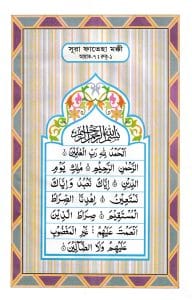 সূরা ফাতেহা মক্কী
আয়াত-৭ঃ রুকু-১
بسم الله الرحمن الرحيم
اَلْحَمْدُ لِلّٰهِ رَبِّ الْعٰلَمِيْنَ ۝
الرَّحْمٰنِ الرَّحِيْمِ ۝ مٰلِكِ يَوْمِ
الدِّيْنِ ۝ اِيَّاكَ نَعْبُدُ وَاِيَّاكَ
نَسْتَعِيْنُ ۝ اِهْدِنَا الصِّرَاطَ
الْمُسْتَقِيْمَ ۝ صِرَاطَ الَّذِيْنَ
اَنْعَمْتَ عَلَيْهِمْ ۝ غَيْرِ الْمَغْضُوْبِ
عَلَيْهِمْ وَلَا الضَّآلِّيْنَ ۝